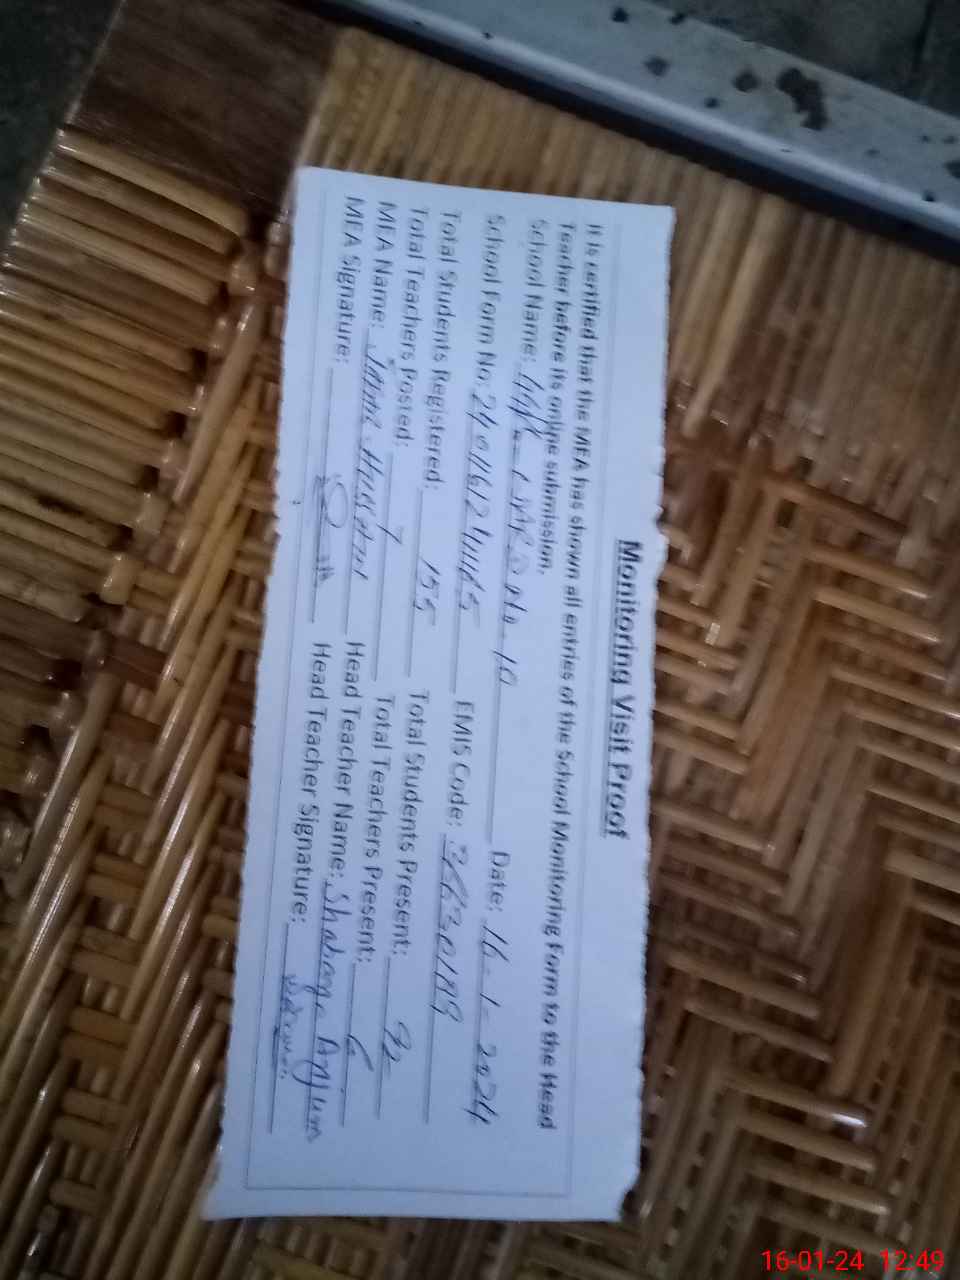 Monitoring Visit Proof
It is certified that the MEA has shown all entries of the School Monitoring Form to the Head
Teacher before its online submission.
School Name: 10 Date: 16-1-2024
School Form No: EMIS Code:
Total Students Registered: 155 Total Students Present: 92
Total Teachers Posted: 7 Total Teachers Present: 6
MEA Name: Hussain Head Teacher Name: Anjum
MEA Signature: Head Teacher Signature:
16-01-24 12:49